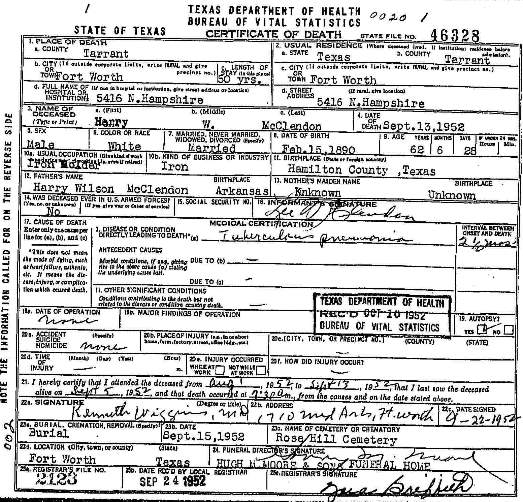 TEXAS DEPARTMENT OF HEALTH
BUREAU OF VITAL STATISTICS
0020 1
STATE OF TEXAS
CERTIFICATE OF DEATH
STATE FILE NO. 46328
1. PLACE OF DEATH
a. COUNTY
Tarrant
2. USUAL RESIDENCE (Where deceased lived. If institution: residence before admission).
a. STATE
Texas
b. COUNTY
Tarrant
b. CITY (If outside corporate limits, write RURAL and give precinct no.)
OR TOWN Fort Worth
c. LENGTH OF STAY (in this place)
50 yrs.
c. CITY (If outside corporate limits, write RURAL and give precinct no.)
OR TOWN Fort Worth
d. FULL NAME OF (If not in hospital or institution, give street address or location)
HOSPITAL OR INSTITUTION 5416 N.Hampshire
d. STREET ADDRESS (If rural, give location)
5416 N.Hampshire
3. NAME OF DECEASED (Type or Print)
a. (First)
Henry
b. (Middle)
W.
c. (Last)
McClendon
4. DATE OF DEATH Sept.13,1952
5. SEX
Male
6. COLOR OR RACE
White
7. MARRIED, NEVER MARRIED, WIDOWED, DIVORCED (Specify)
Married
8. DATE OF BIRTH
Feb.15,1890
YEARS MONTHS DAYS
62 6 28
Hours Min.
10a. USUAL OCCUPATION
Iron Molder
10b. KIND OF BUSINESS OR INDUSTRY
Iron
11. BIRTHPLACE (State or foreign country)
Hamilton County ,Texas
12. FATHER'S NAME
Harry Wilson McClendon
BIRTHPLACE
Arkansas
13. MOTHER'S MAIDEN NAME
Knknown
BIRTHPLACE
Unknown
14. WAS DECEASED EVER IN U.S. ARMED FORCES?
(Yes, no, or unknown) (If yes, give war or dates of service)
No
15. SOCIAL SECURITY NO.
16. INFORMANT'S SIGNATURE
17. CAUSE OF DEATH
Enter only one cause per line for (a), (b), and (c)
MEDICAL CERTIFICATION
I. DISEASE OR CONDITION DIRECTLY LEADING TO DEATH* (a)
Tuberculous pneumonia
INTERVAL BETWEEN ONSET AND DEATH
2 1/2 mos
*This does not mean the mode of dying, such as heart failure, asthenia, etc. It means the disease, injury, or complication which caused death.
ANTECEDENT CAUSES
DUE TO (b)
Morbid conditions, if any, giving rise to the above cause (a) stating the underlying cause last.
DUE TO (c)
II. OTHER SIGNIFICANT CONDITIONS
Conditions contributing to the death but not related to the disease or condition causing death.
TEXAS DEPARTMENT OF HEALTH
REC'D OCT 10 1952
BUREAU OF VITAL STATISTICS
18a. DATE OF OPERATION
none
18b. MAJOR FINDINGS OF OPERATION
19. AUTOPSY?
YES NO
20a. ACCIDENT SUICIDE HOMICIDE (Specify)
none
20b. PLACE OF INJURY (e.g., in or about home, farm, factory, street, office bldg., etc.)
20c. (CITY, TOWN, OR PRECINCT NO.) (COUNTY) (STATE)
20d. TIME OF INJURY (Month) (Day) (Year) (Hour)
20e. INJURY OCCURRED
WHILE AT WORK NOT WHILE AT WORK
20f. HOW DID INJURY OCCUR?
21. I hereby certify that I attended the deceased from Aug 1, 1952 to Sept 13, 1952 That I last saw the deceased
alive on Sept 5, 1952 and that death occurred at 7:30 m., from the causes and on the date stated above.
22a. SIGNATURE (Degree or title)
Kenneth Wiggins, MD
22b. ADDRESS
1710 Med Arts, Ft. Worth
22c. DATE SIGNED
9-22-1952
23a. BURIAL, CREMATION, REMOVAL (Specify)
Burial
23b. DATE
Sept.15,1952
23c. NAME OF CEMETERY OR CREMATORY
Rose Hill Cemetery
23d. LOCATION (City, town, or county) (State)
Fort Worth Texas
24. FUNERAL DIRECTOR'S SIGNATURE
HUGH M MOORE & SONS FUNERAL HOME
25a. REGISTRAR'S FILE NO.
2123
25b. DATE REC'D BY LOCAL REGISTRAR
SEP 24 1952
25c. REGISTRAR'S SIGNATURE
NOTE THE INFORMATION CALLED FOR ON THE REVERSE SIDE
002